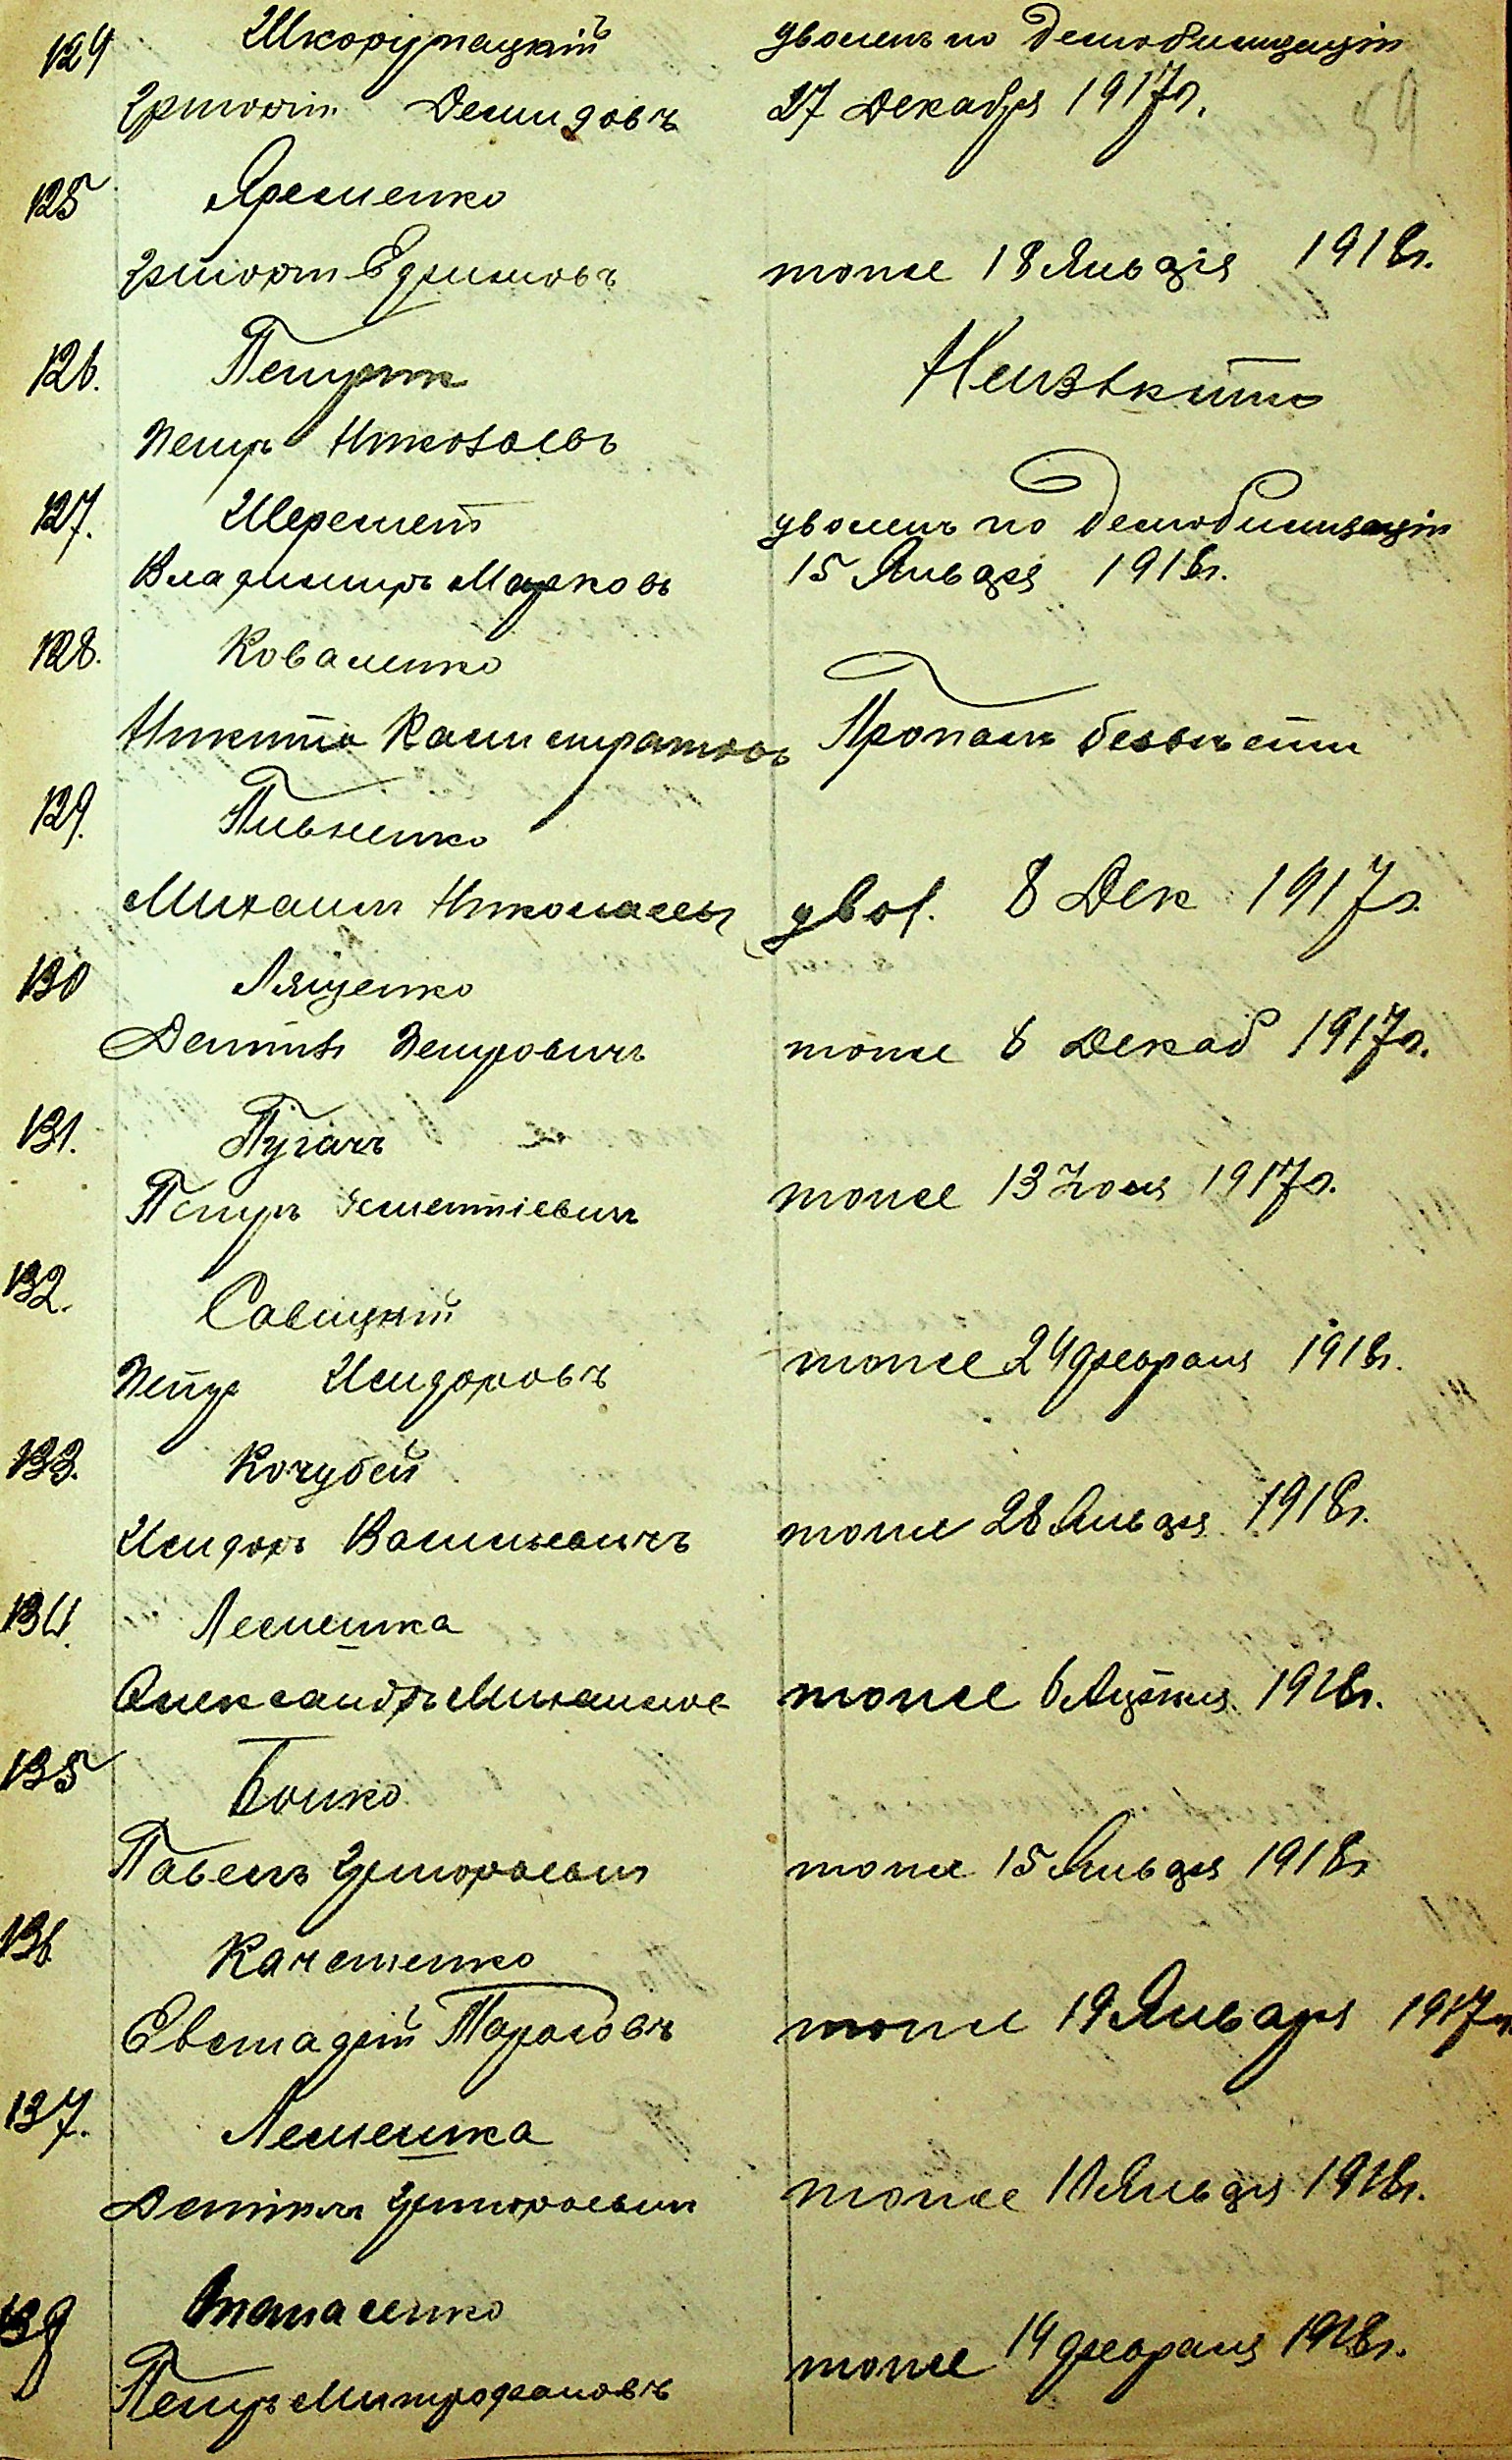 124 Шкорупацкій уволенъ по демобилизаціи
Григорій Демидовъ 27 Декабря 1917г.
59
125 Яременко
Григорій Ефимовъ тоже 18 Января 1918г.
126. Петрик Неизвѣстно
Петръ Николаевъ
127. Шеремет уволенъ по демобилизаціи
Владимиръ Марковъ 15 Января 1918г.
128. Коваленко
Никита Калистратовъ Пропалъ безвѣсти
129. Пивненко
Михаилъ Николаевъ увол. 8 Дек 1917г.
130 Лященко
Демитъ Петровичъ тоже 6 Декаб 1917г.
131. Пугачъ
Петръ тоже 13 1917г.
132. Савицкій
Петръ Исидоровъ тоже 24 февраля 1918г.
133. Кочубей
Исидоръ Васильевичъ тоже 28 Января 1918г.
134. Лемешка
Александръ Михайлов тоже 6 1918г.
135 Бойко
Павелъ Григорьевич тоже 15 Января 1918г
136 Качененко
Евстафій Тарасовъ тоже 19 Января 1917г
137. Лемешка
Григорьевич тоже 11 Января 1918г.
138 Атамасенко
Петръ Митрофановъ тоже 14 февраля 1918г.